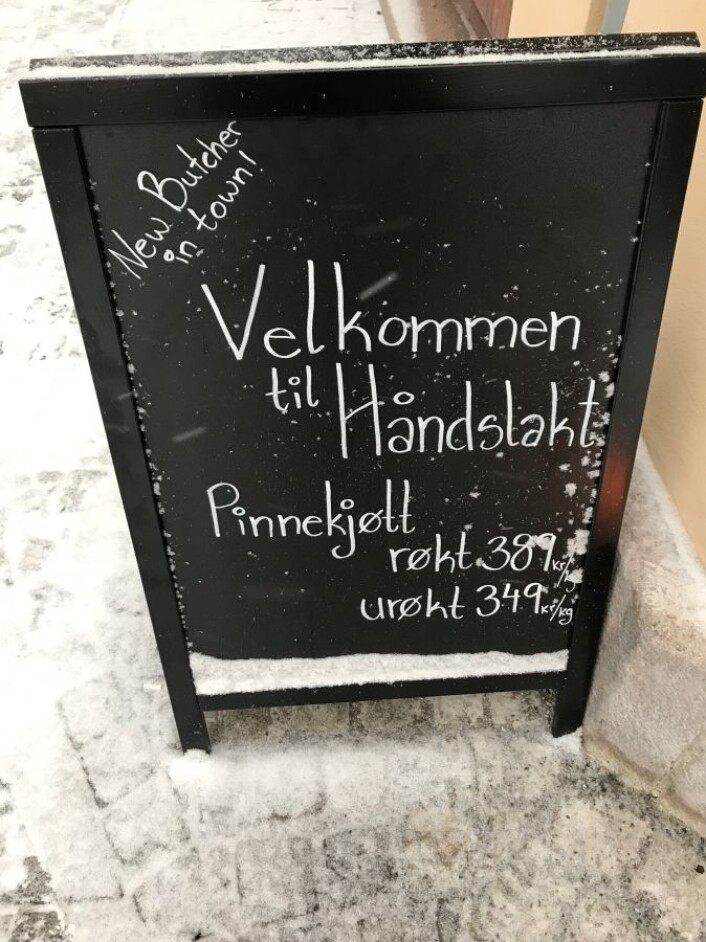 New Butcher
in town!
Velkommen
til Håndslakt
Pinnekjøtt
røkt 389kr/kg
urøkt 349kr/kg